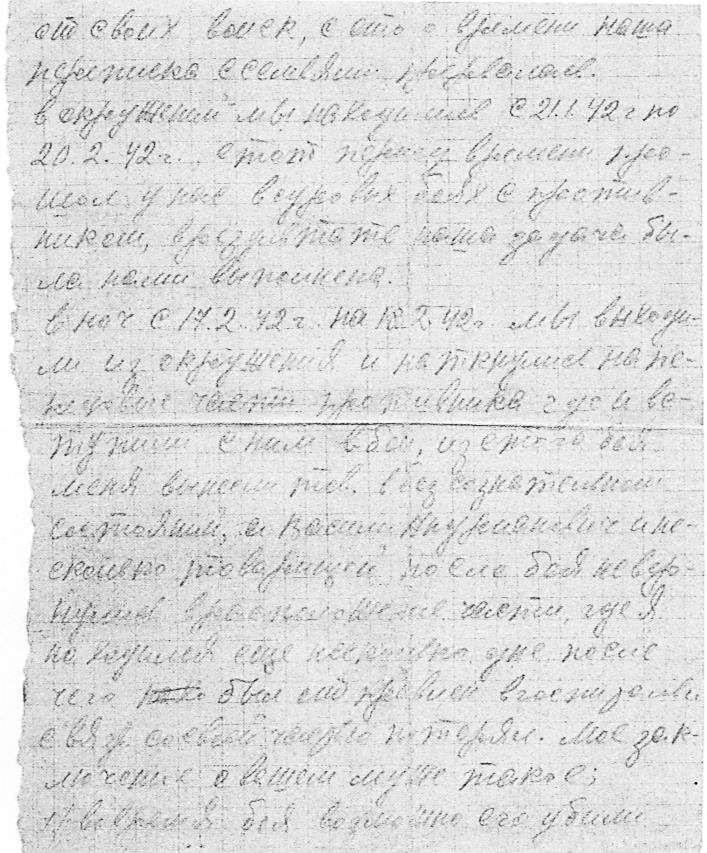 от своих воиск, с этого времени наша
переписка с семьями прервалась.
в окружении мы находились с 21.1.42 г по
20.2.42 г., этот период времени про-
шол у нас в суровых боях с против-
ником, в результате наша задача бы-
ла нами выполнена.
в ноч с 17.2.42 г. на 18.2.42 г. мы выходи-
ли из окружения и наткнулись на пе-
редовые части противника где и вс-
тупили с ним в бой, из этого боя
меня вынесли тов. в безсознательном
состоянии, а Василий и не-
сколько товарищей после боя не вер-
нулись в расположение части, где я
находился еще несколько дне после
чего был отправлен в госпиталь
связ со своей частью потерял. Мое зак-
лючение о вашем муже такое;
1/ во время боя возможно его убили